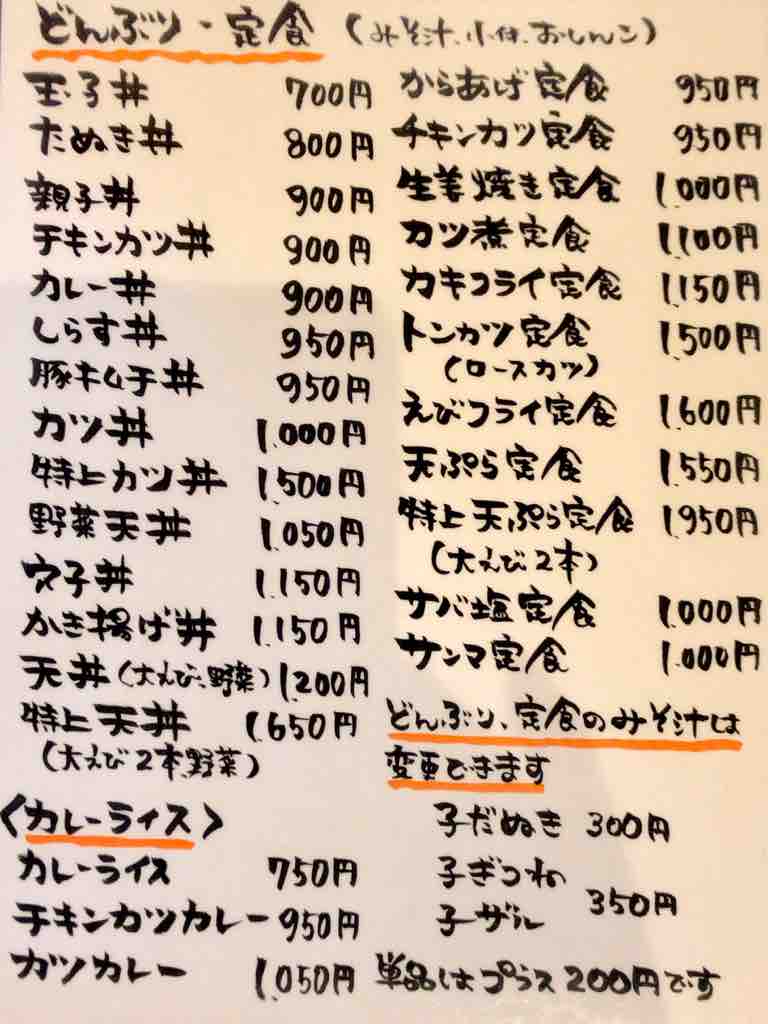 どんぶり・定食 (みそ汁、小付、おしんこ)
玉子丼 700円
たぬき丼 800円
親子丼 900円
チキンカツ丼 900円
カレー丼 900円
しらす丼 950円
豚キムチ丼 950円
カツ丼 1,000円
特上カツ丼 1,500円
野菜天丼 1,050円
穴子丼 1,150円
かき揚げ丼 1,150円
天丼(大えび、野菜) 1,200円
特上天丼 1,650円
(大えび2本、野菜)
〈カレーライス〉
カレーライス 750円
チキンカツカレー 950円
カツカレー 1,050円
からあげ定食 950円
チキンカツ定食 950円
生姜焼き定食 1,000円
カツ煮定食 1,100円
カキフライ定食 1,150円
トンカツ定食 1,500円
(ロースカツ)
えびフライ定食 1,600円
天ぷら定食 1,550円
特上天ぷら定食 1,950円
(大えび2本)
サバ塩定食 1,000円
サンマ定食 1,000円
どんぶり、定食のみそ汁は
変更できます
子だぬき 300円
子ぎつね
子ザル 350円
単品はプラス200円です